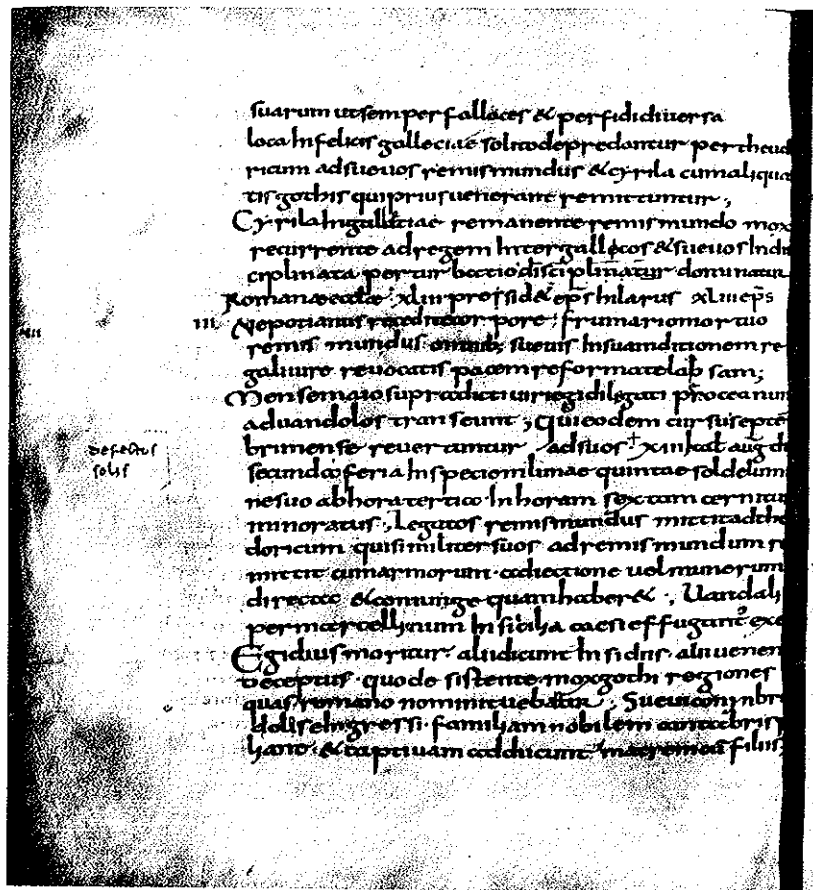 suarum ut semper fallaces & perfidi diuersa
loca infelicis galleciae solito depredantur per theud
ricum ad sueuos remismundus & cyrila cum aliqua
tis gothis qui prius uenerant remittuntur;
Cyrila in galletiae remanente remismundo mox
recurrente ad regem inter gallecos & sueuos indis
ciplinata perturbatio disciplinatur dominatur
Romanae eccłae xliii presid& ep̄s hilarus xliii ep̄s
III Nepotianus recedit e corpore; frumario mortuo
remismundus omnib; sueuis in suam ditionem re
gali iure reuocatis pacem reformat elapsam;
Mense maio supradicti uiri egidi legati p̄ oceanum
ad uandalos transeunt; qui eodem cursu septe
brimense reuertuntur ad suos xiii kal aug̅ die
defectus
solis
secunda feria in speciom lunae quintae sol de lumi
ne suo ab hora tertia in horam sextam cernitur
minoratus; Legatos remismundus mittit ad the
doricum qui similiter suos ad remismundum re
mittit cum armorum adiectione uel munerum
directa & coniuge quam haber&; Uandali
per marcellinum in sicilia caesi effugant exe
Egidius moritur alii dicunt insidiis alii uenen
deceptus quo desistente mox gothi regiones
quas romano nomini tuebatur. Sueui conimbri
dolise ingressi familiam nobilem cantabris
liano & captiuam adducunt matrem cū filiis,